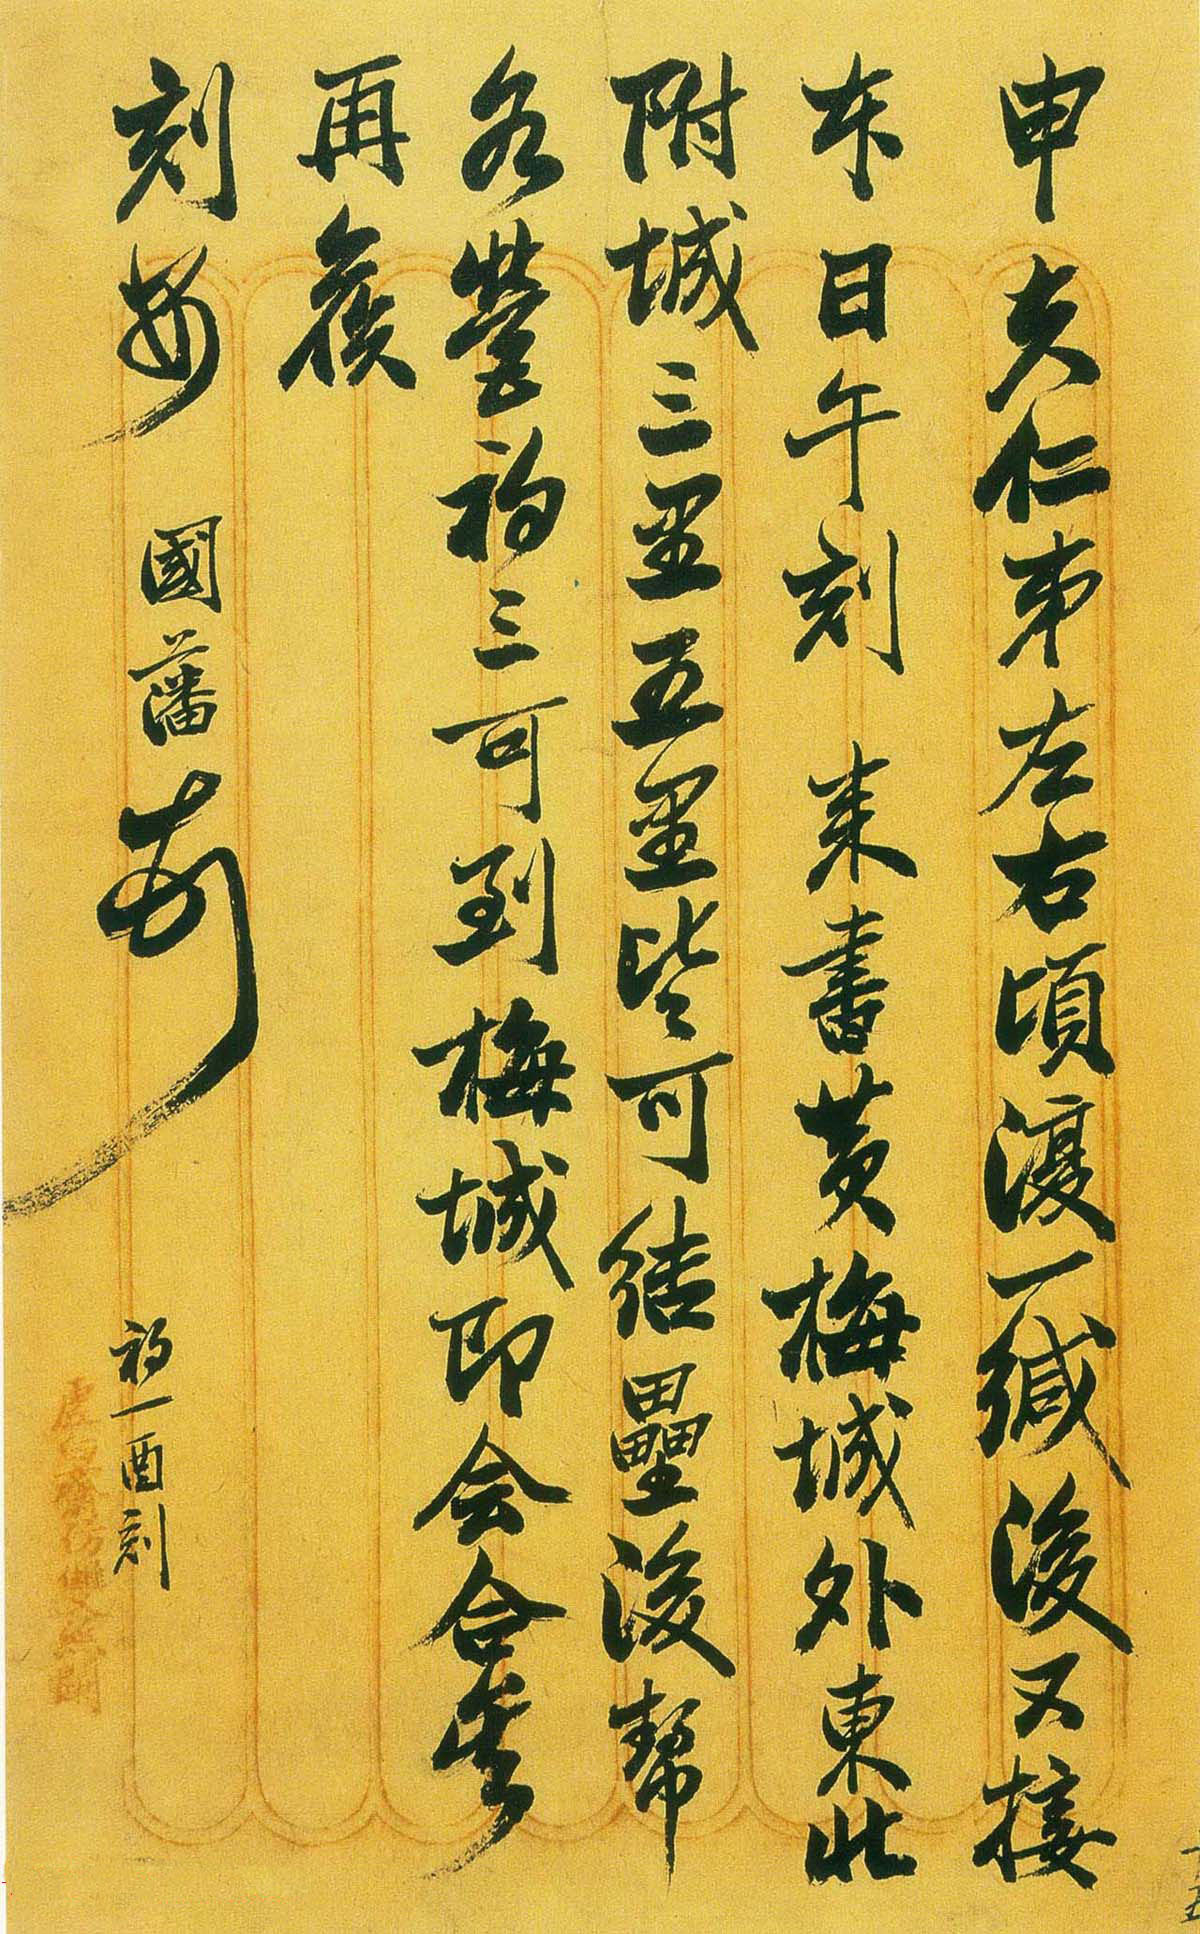 申夫仁弟左右頃復一緘後又接
本日午刻 来書黃梅城外東北
附城三里五里皆可結壘後幫
各營初三可到梅城即会合矣
再候
刻安 國藩
初一酉刻